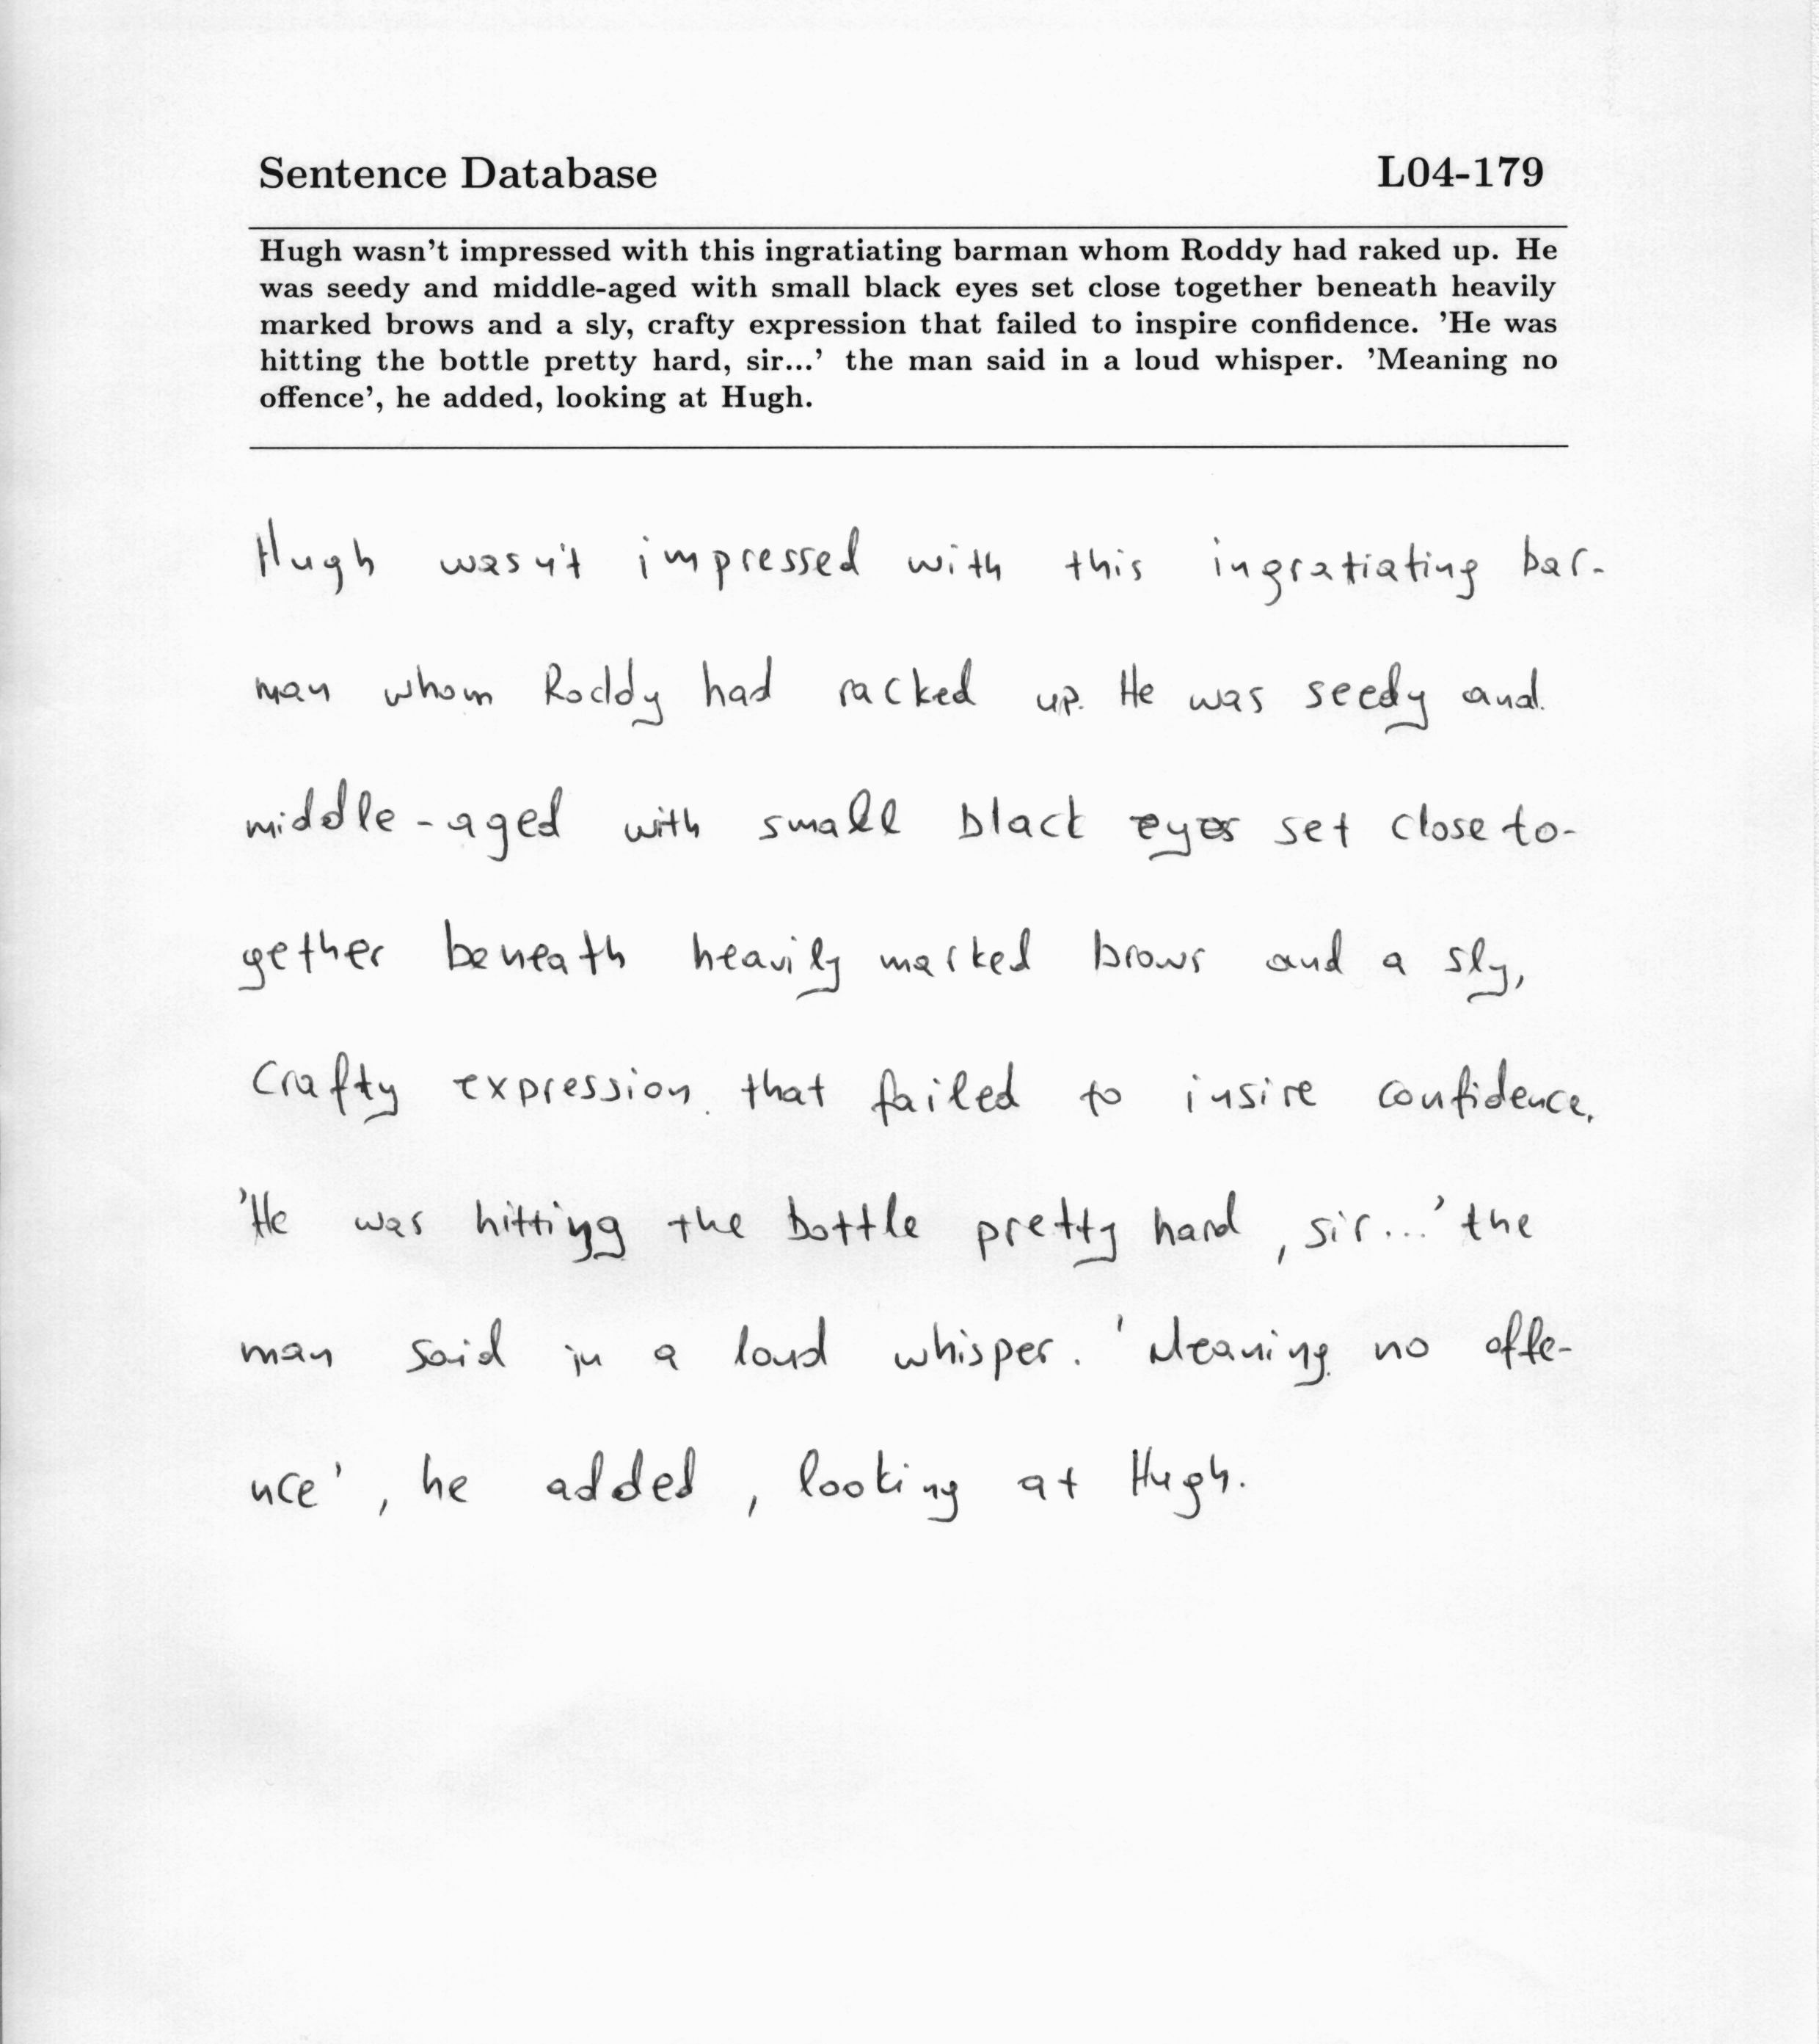 Sentence Database L04-179
Hugh wasn't impressed with this ingratiating barman whom Roddy had raked up. He
was seedy and middle-aged with small black eyes set close together beneath heavily
marked brows and a sly, crafty expression that failed to inspire confidence. 'He was
hitting the bottle pretty hard, sir...' the man said in a loud whisper. 'Meaning no
offence', he added, looking at Hugh.
Hugh wasn't impressed with this ingratiating bar-
man whom Roddy had racked up. He was seedy and
middle-aged with small black eyes set close to-
gether beneath heavily marked brows and a sly,
crafty expression that failed to insire confidence.
'He was hitting the bottle pretty hard, sir...' the
man said in a loud whisper. 'Meaning no offe-
nce', he added, looking at Hugh.